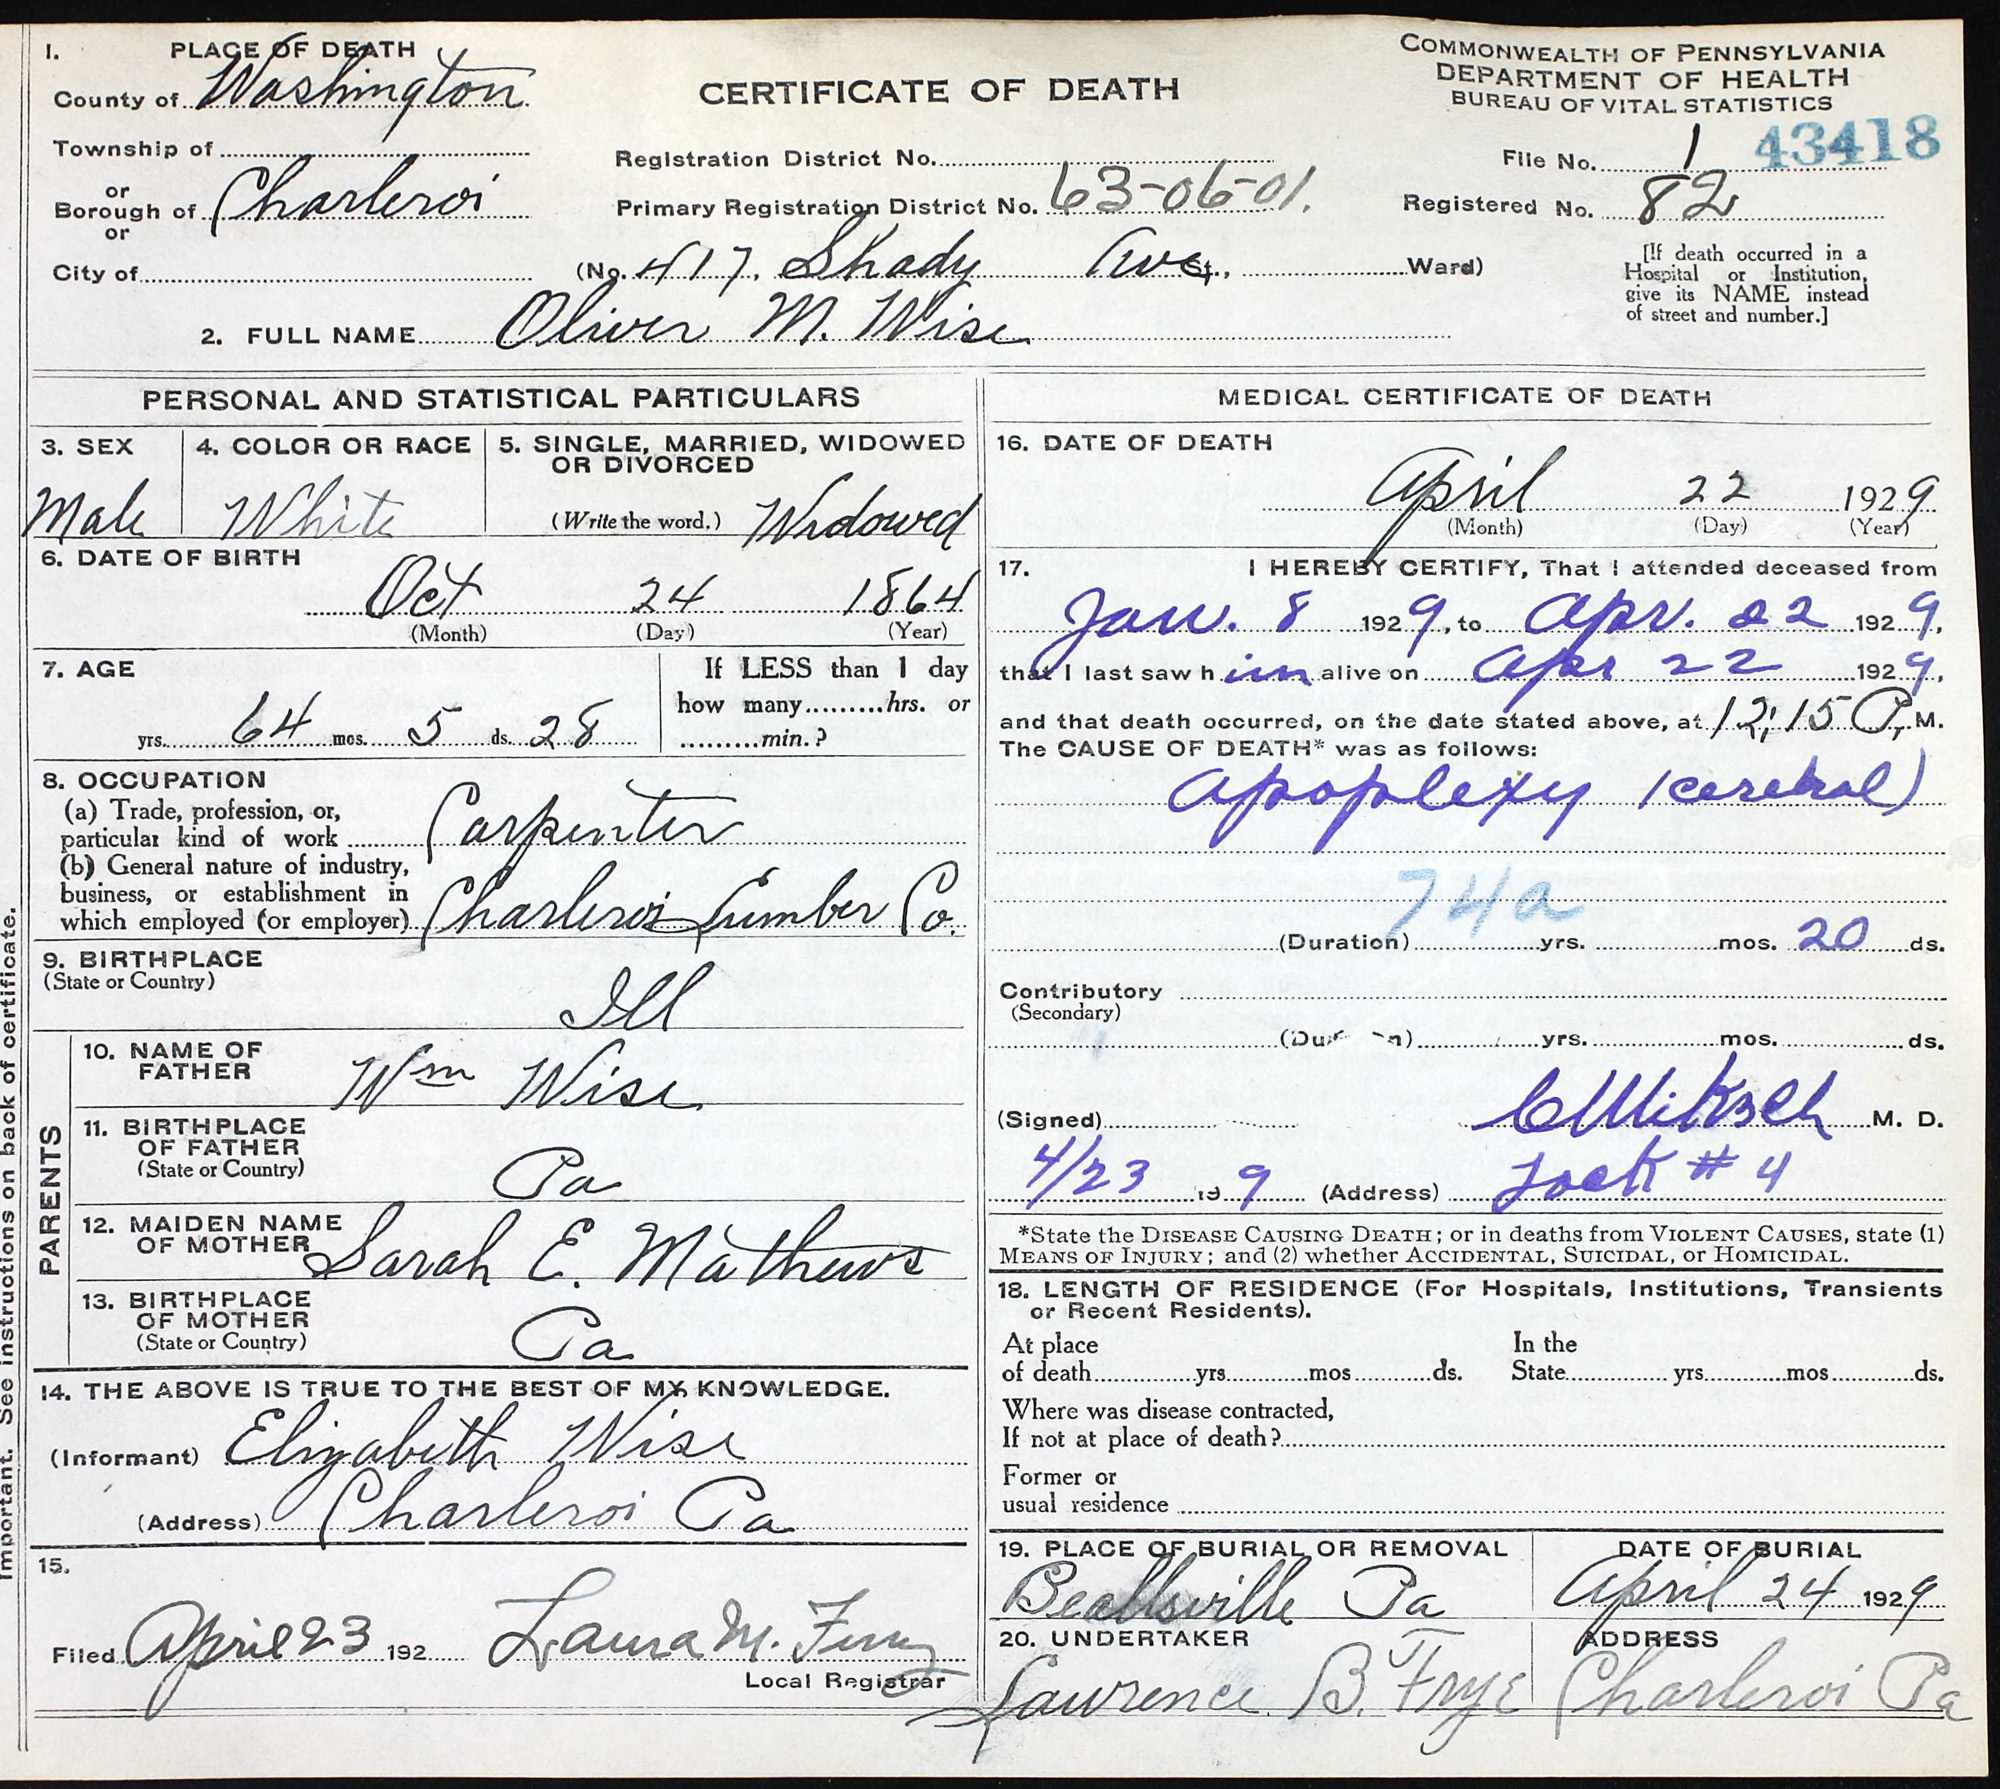 1. PLACE OF DEATH
County of Washington
Township of
or
Borough of Charleroi
or
City of
CERTIFICATE OF DEATH
Registration District No.
Primary Registration District No. 63-06-01.
(No. 417, Shady Ave St., Ward)
COMMONWEALTH OF PENNSYLVANIA
DEPARTMENT OF HEALTH
BUREAU OF VITAL STATISTICS
File No. 1 43418
Registered No. 82
[If death occurred in a
Hospital or Institution,
give its NAME instead
of street and number.]
2. FULL NAME Oliver M. Wise
PERSONAL AND STATISTICAL PARTICULARS
3. SEX
Male
4. COLOR OR RACE
White
5. SINGLE, MARRIED, WIDOWED
OR DIVORCED
(Write the word.) Widowed
6. DATE OF BIRTH
Oct 24 1864
(Month) (Day) (Year)
7. AGE
yrs. 64 mos. 5 ds. 28
If LESS than 1 day
how many hrs. or
min.?
8. OCCUPATION
(a) Trade, profession, or,
particular kind of work Carpenter
(b) General nature of industry,
business, or establishment in
which employed (or employer) Charleroi Lumber Co.
9. BIRTHPLACE
(State or Country)
Ill
PARENTS
10. NAME OF
FATHER
Wm Wise
11. BIRTHPLACE
OF FATHER
(State or Country)
Pa
12. MAIDEN NAME
OF MOTHER Sarah E. Mathews
13. BIRTHPLACE
OF MOTHER
(State or Country)
Pa
14. THE ABOVE IS TRUE TO THE BEST OF MY KNOWLEDGE.
(Informant) Elizabeth Wise
(Address) Charleroi Pa
15.
Filed April 23 192 Laura M.
Local Registrar
MEDICAL CERTIFICATE OF DEATH
16. DATE OF DEATH
April 22 1929
(Month) (Day) (Year)
17. I HEREBY CERTIFY, That I attended deceased from
Jan. 8 1929, to Apr. 22 1929,
that I last saw him alive on Apr 22 1929,
and that death occurred, on the date stated above, at 12:15 P. M.
The CAUSE OF DEATH* was as follows:
Apoplexy (cerebral)
74a
(Duration) yrs. mos. 20 ds.
Contributory
(Secondary)
(Duration) yrs. mos. ds.
(Signed) M. D.
4/23 19 9 (Address) Lock #4
*State the DISEASE CAUSING DEATH; or in deaths from VIOLENT CAUSES, state (1)
MEANS OF INJURY; and (2) whether ACCIDENTAL, SUICIDAL, or HOMICIDAL.
18. LENGTH OF RESIDENCE (For Hospitals, Institutions, Transients
or Recent Residents).
At place
of death yrs. mos ds.
In the
State yrs. mos ds.
Where was disease contracted,
If not at place of death?
Former or
usual residence
19. PLACE OF BURIAL OR REMOVAL
Beallsville Pa
DATE OF BURIAL
April 24 1929
20. UNDERTAKER
Lawrence B. Frye
ADDRESS
Charleroi Pa
Important. See instructions on back of certificate.